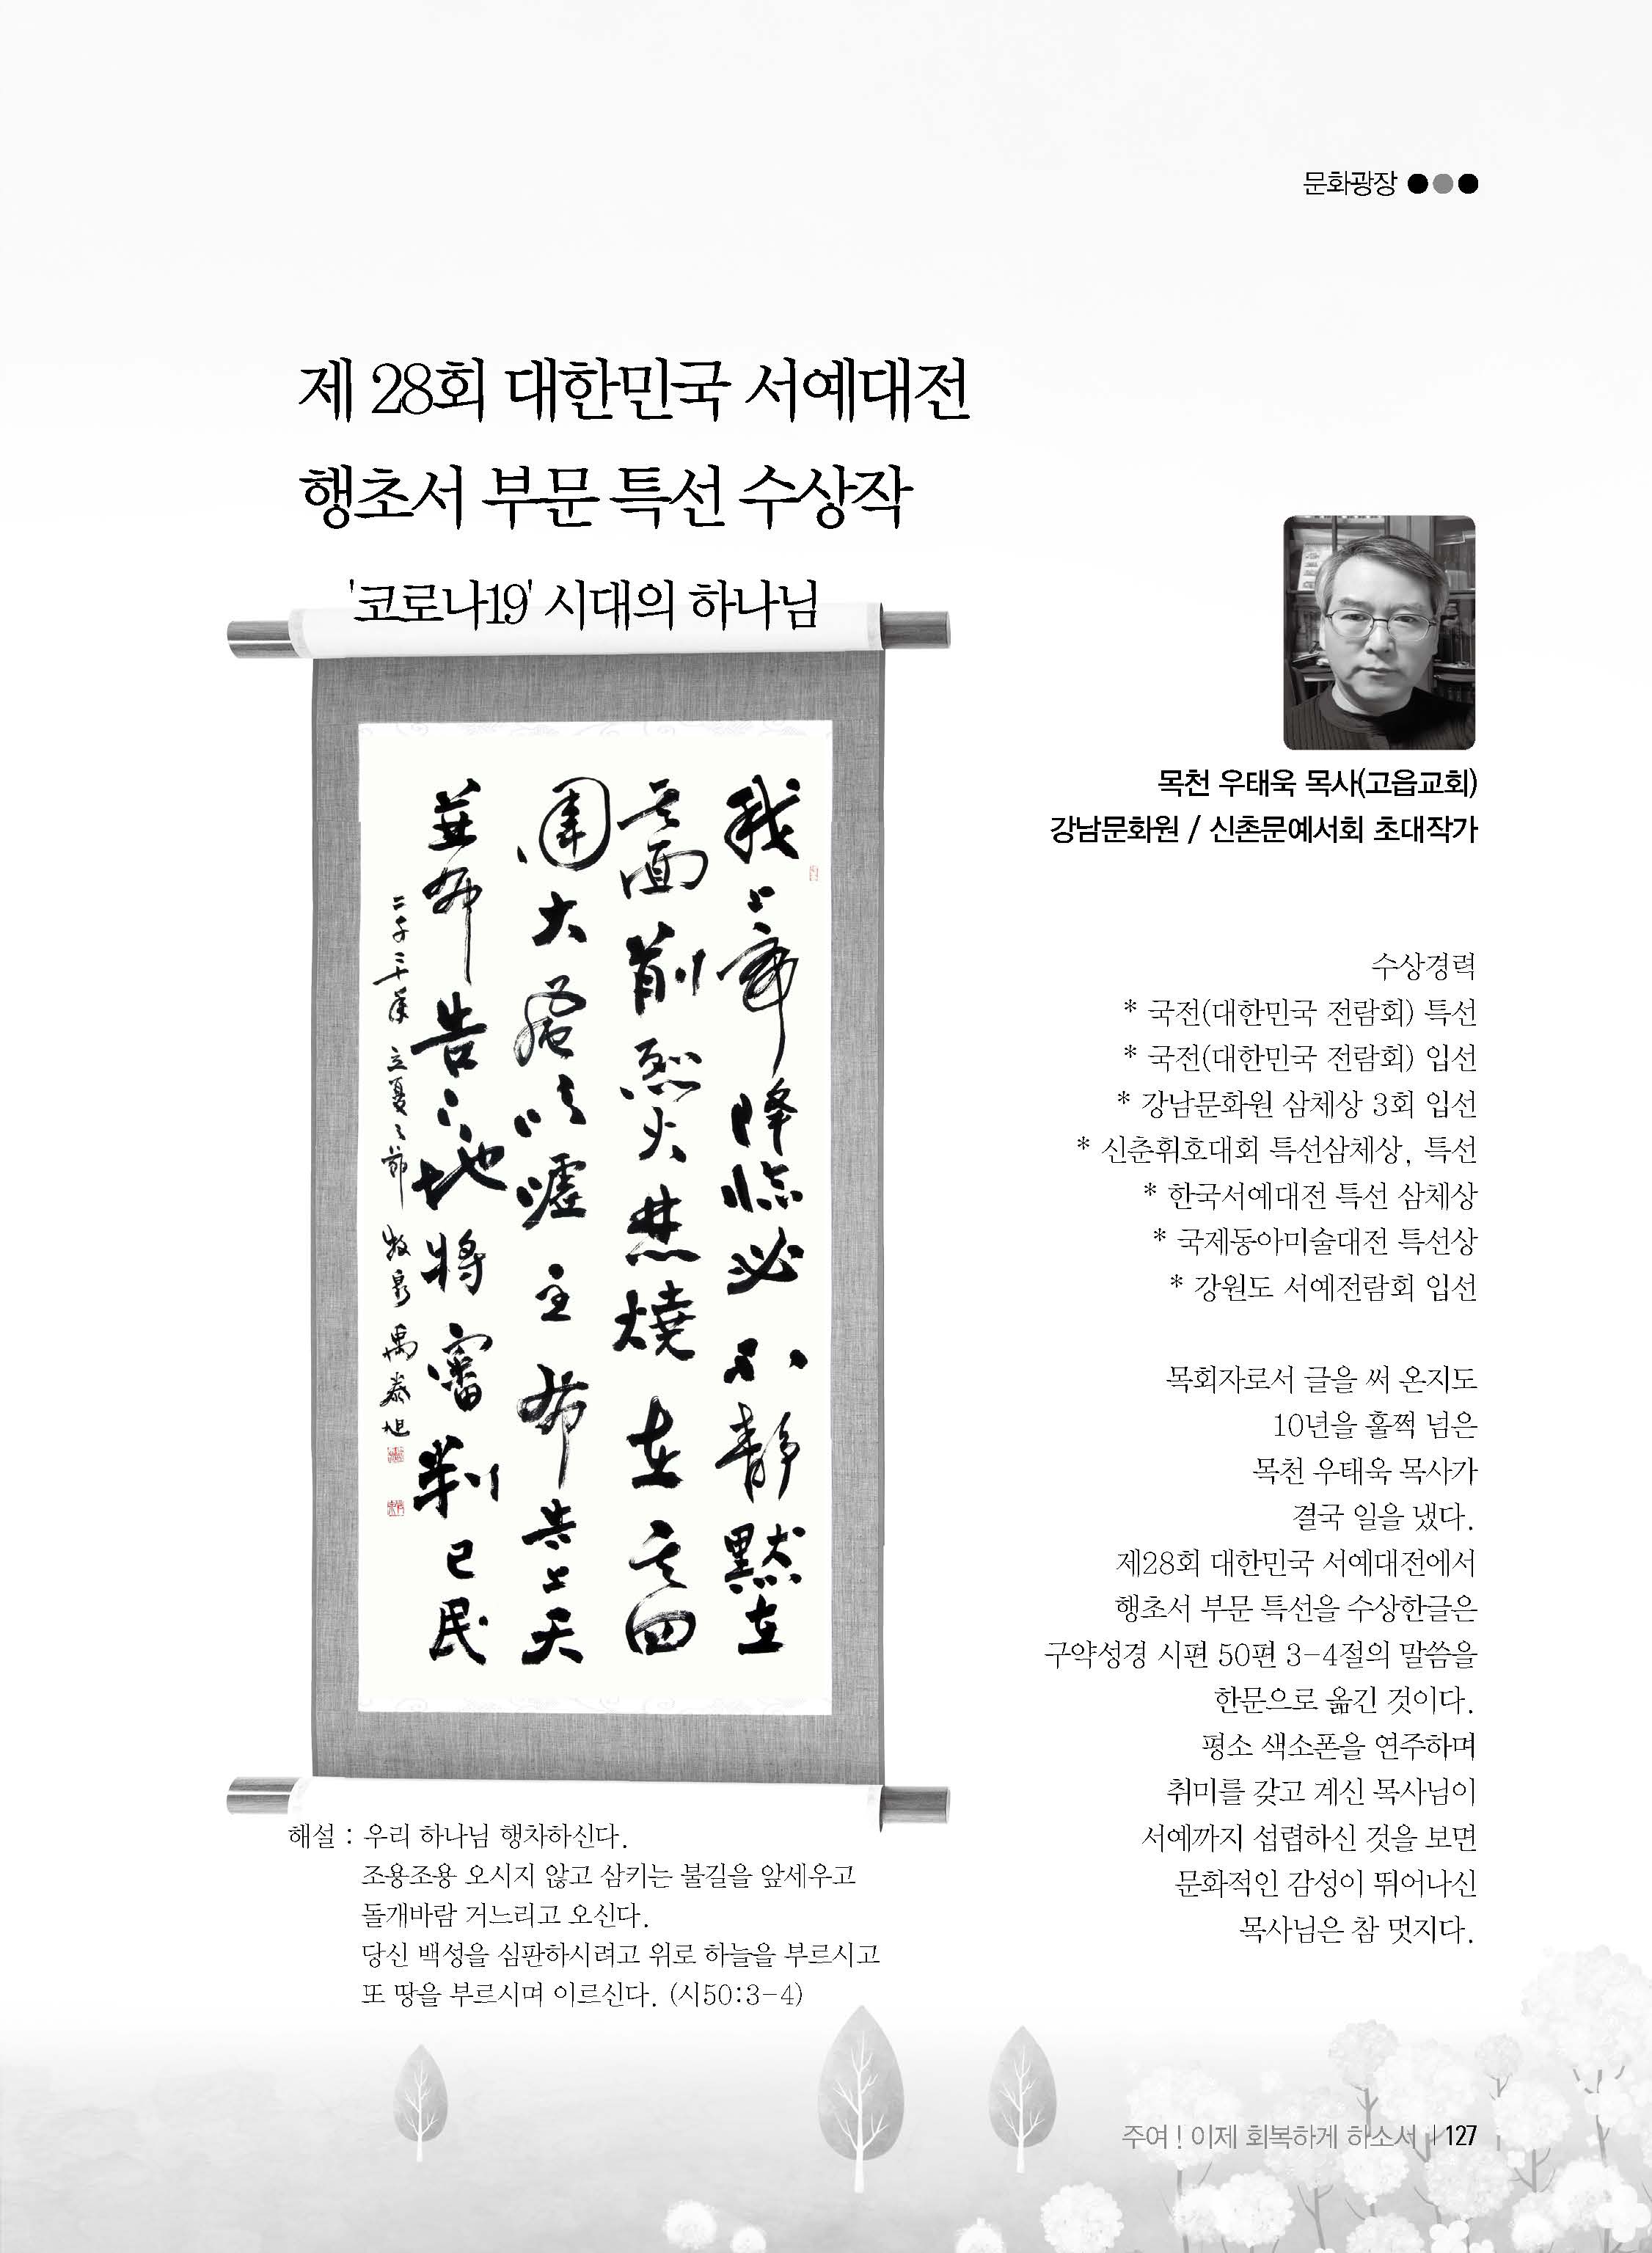 문화광장
제 28회 대한민국 서예대전
행초서 부문 특선 수상작
'코로나19' 시대의 하나님
我上帝降臨必不靜默在
其面前烈火焚燒在其四
圍大風吹噓主布告上天
並布告下地將審判己民
二千二十年 立夏之節 牧泉 禹泰旭
해설 : 우리 하나님 행차하신다.
조용조용 오시지 않고 삼키는 불길을 앞세우고
돌개바람 거느리고 오신다.
당신 백성을 심판하시려고 위로 하늘을 부르시고
또 땅을 부르시며 이르신다. (시50:3-4)
목천 우태욱 목사(고읍교회)
강남문화원 / 신촌문예서회 초대작가
수상경력
* 국전(대한민국 전람회) 특선
* 국전(대한민국 전람회) 입선
* 강남문화원 삼체상 3회 입선
* 신춘휘호대회 특선삼체상, 특선
* 한국서예대전 특선 삼체상
* 국제동아미술대전 특선상
* 강원도 서예전람회 입선
목회자로서 글을 써 온지도
10년을 훌쩍 넘은
목천 우태욱 목사가
결국 일을 냈다.
제28회 대한민국 서예대전에서
행초서 부문 특선을 수상한글은
구약성경 시편 50편 3-4절의 말씀을
한문으로 옮긴 것이다.
평소 색소폰을 연주하며
취미를 갖고 계신 목사님이
서예까지 섭렵하신 것을 보면
문화적인 감성이 뛰어나신
목사님은 참 멋지다.
주여! 이제 회복하게 하소서 | 127